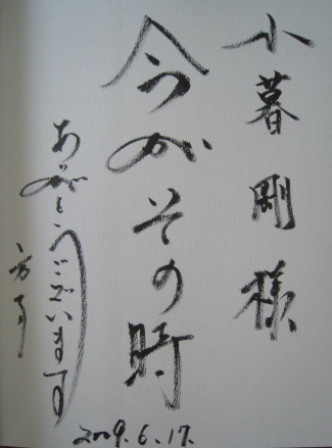 小暮剛様
今がその時
ありがとうございます
2009.6.17.